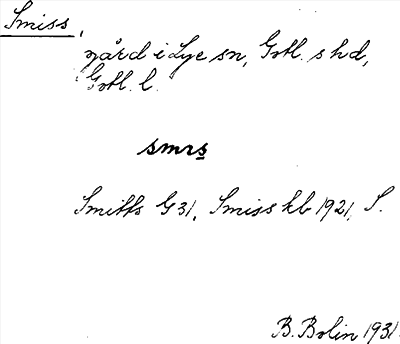 Smiss,
gård i Lye sn, Gotl. s hd,
Gotl. l.
smıs
Smitts G 31, Smiss kb 1921, S.
B. Bolin 1931.